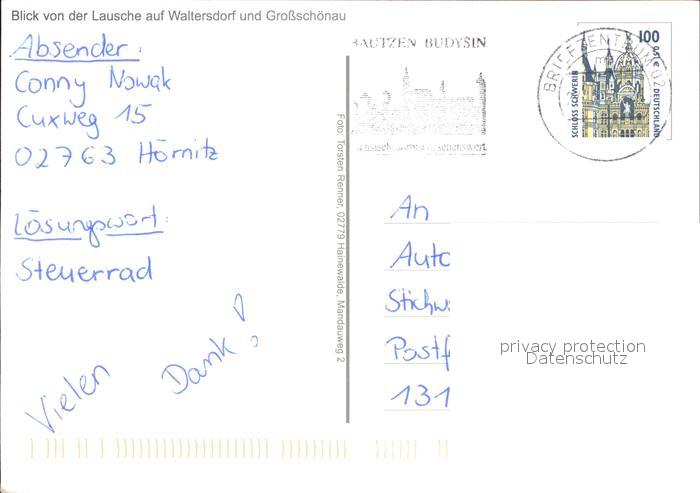 Blick von der Lausche auf Waltersdorf und Großschönau
Absender:
Conny Nowak
Cuxweg 15
02763 Hörnitz
Lösungswort:
Steuerrad
Vielen Dank!
Foto: Torsten Renner, 02779 Hainewalde, Mandauweg 2
BAUTZEN BUDYŠIN
sehenswert
BRIEFZENTRUM 02
100
0,51 €
SCHLOSS SCHWERIN
DEUTSCHLAND
An
Auto
Stichw
Postf
131
privacy protection
Datenschutz